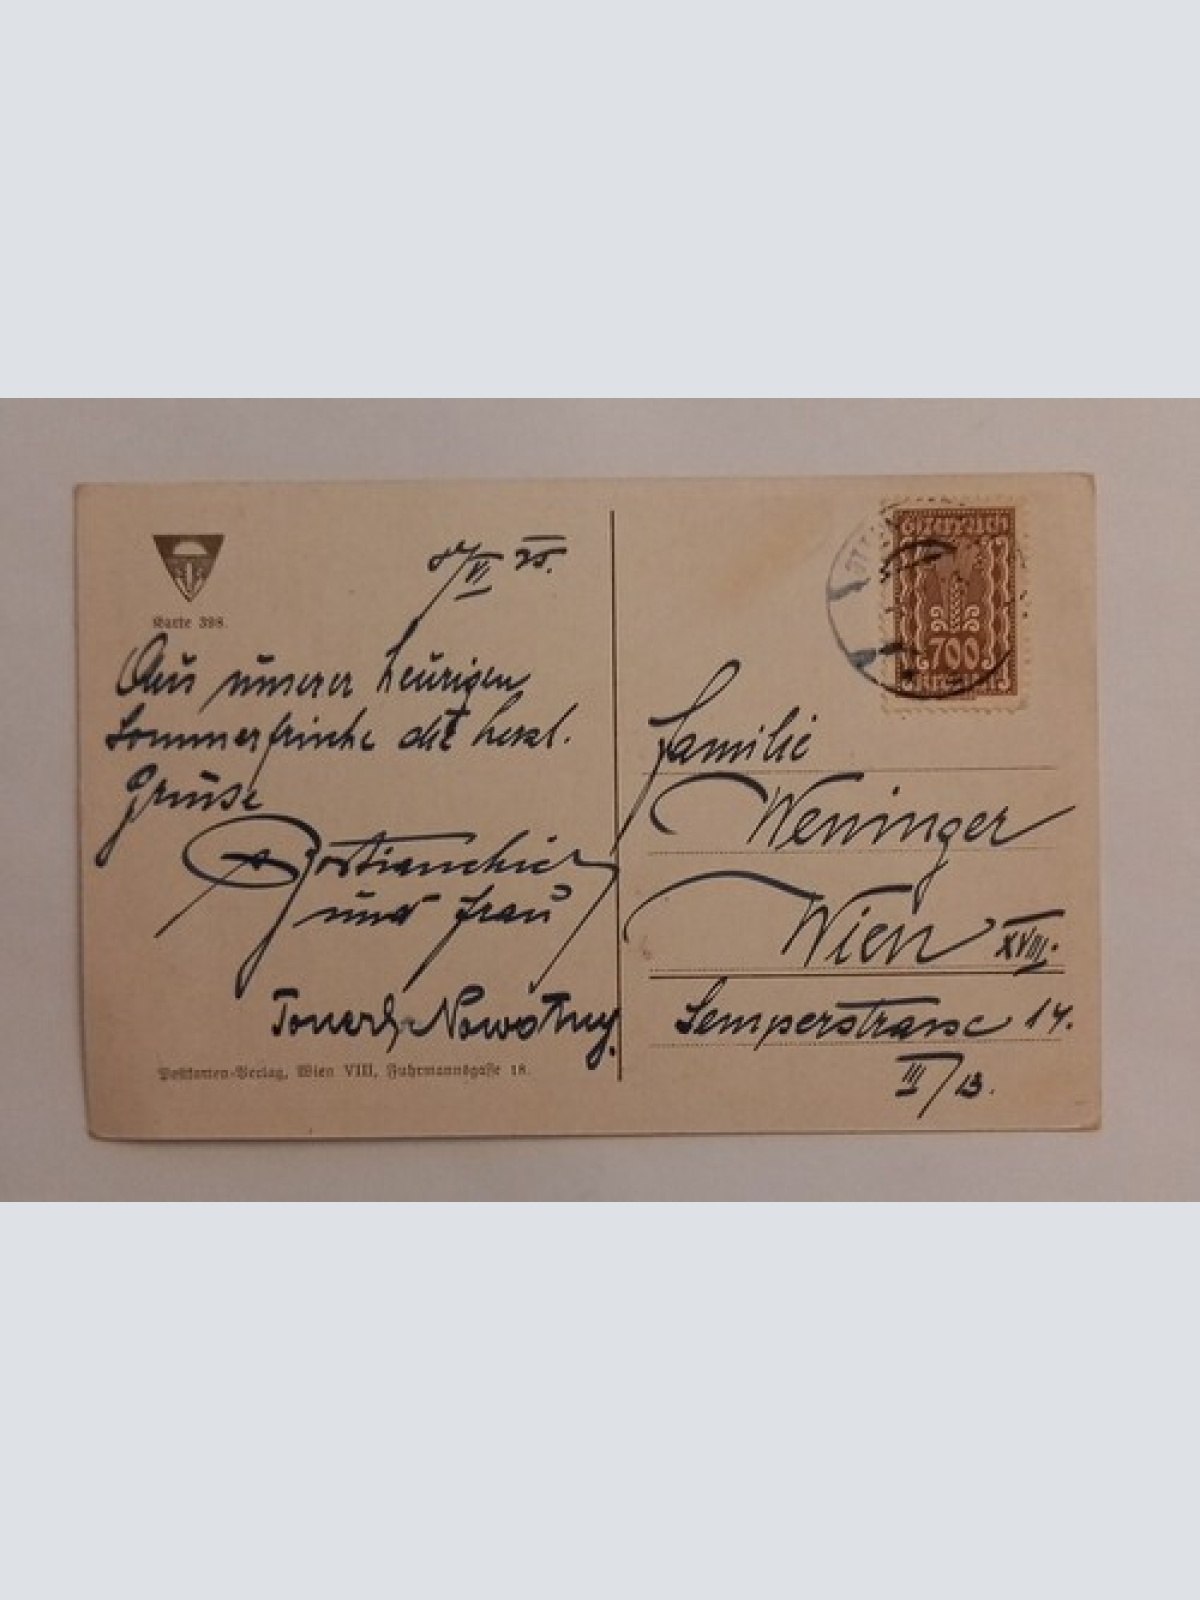 Karte 398.
VI 25.
Aus unserer heurigen
Sommerfrische die herzl.
Grüsse
und Frau
Nowotny.
Postkarten-Verlag, Wien VIII, Fuhrmannsgasse 18.
Österreich
700
Kronen
Familie
Weninger
Wien XVIII.
Semperstrasse 14.
III/13.